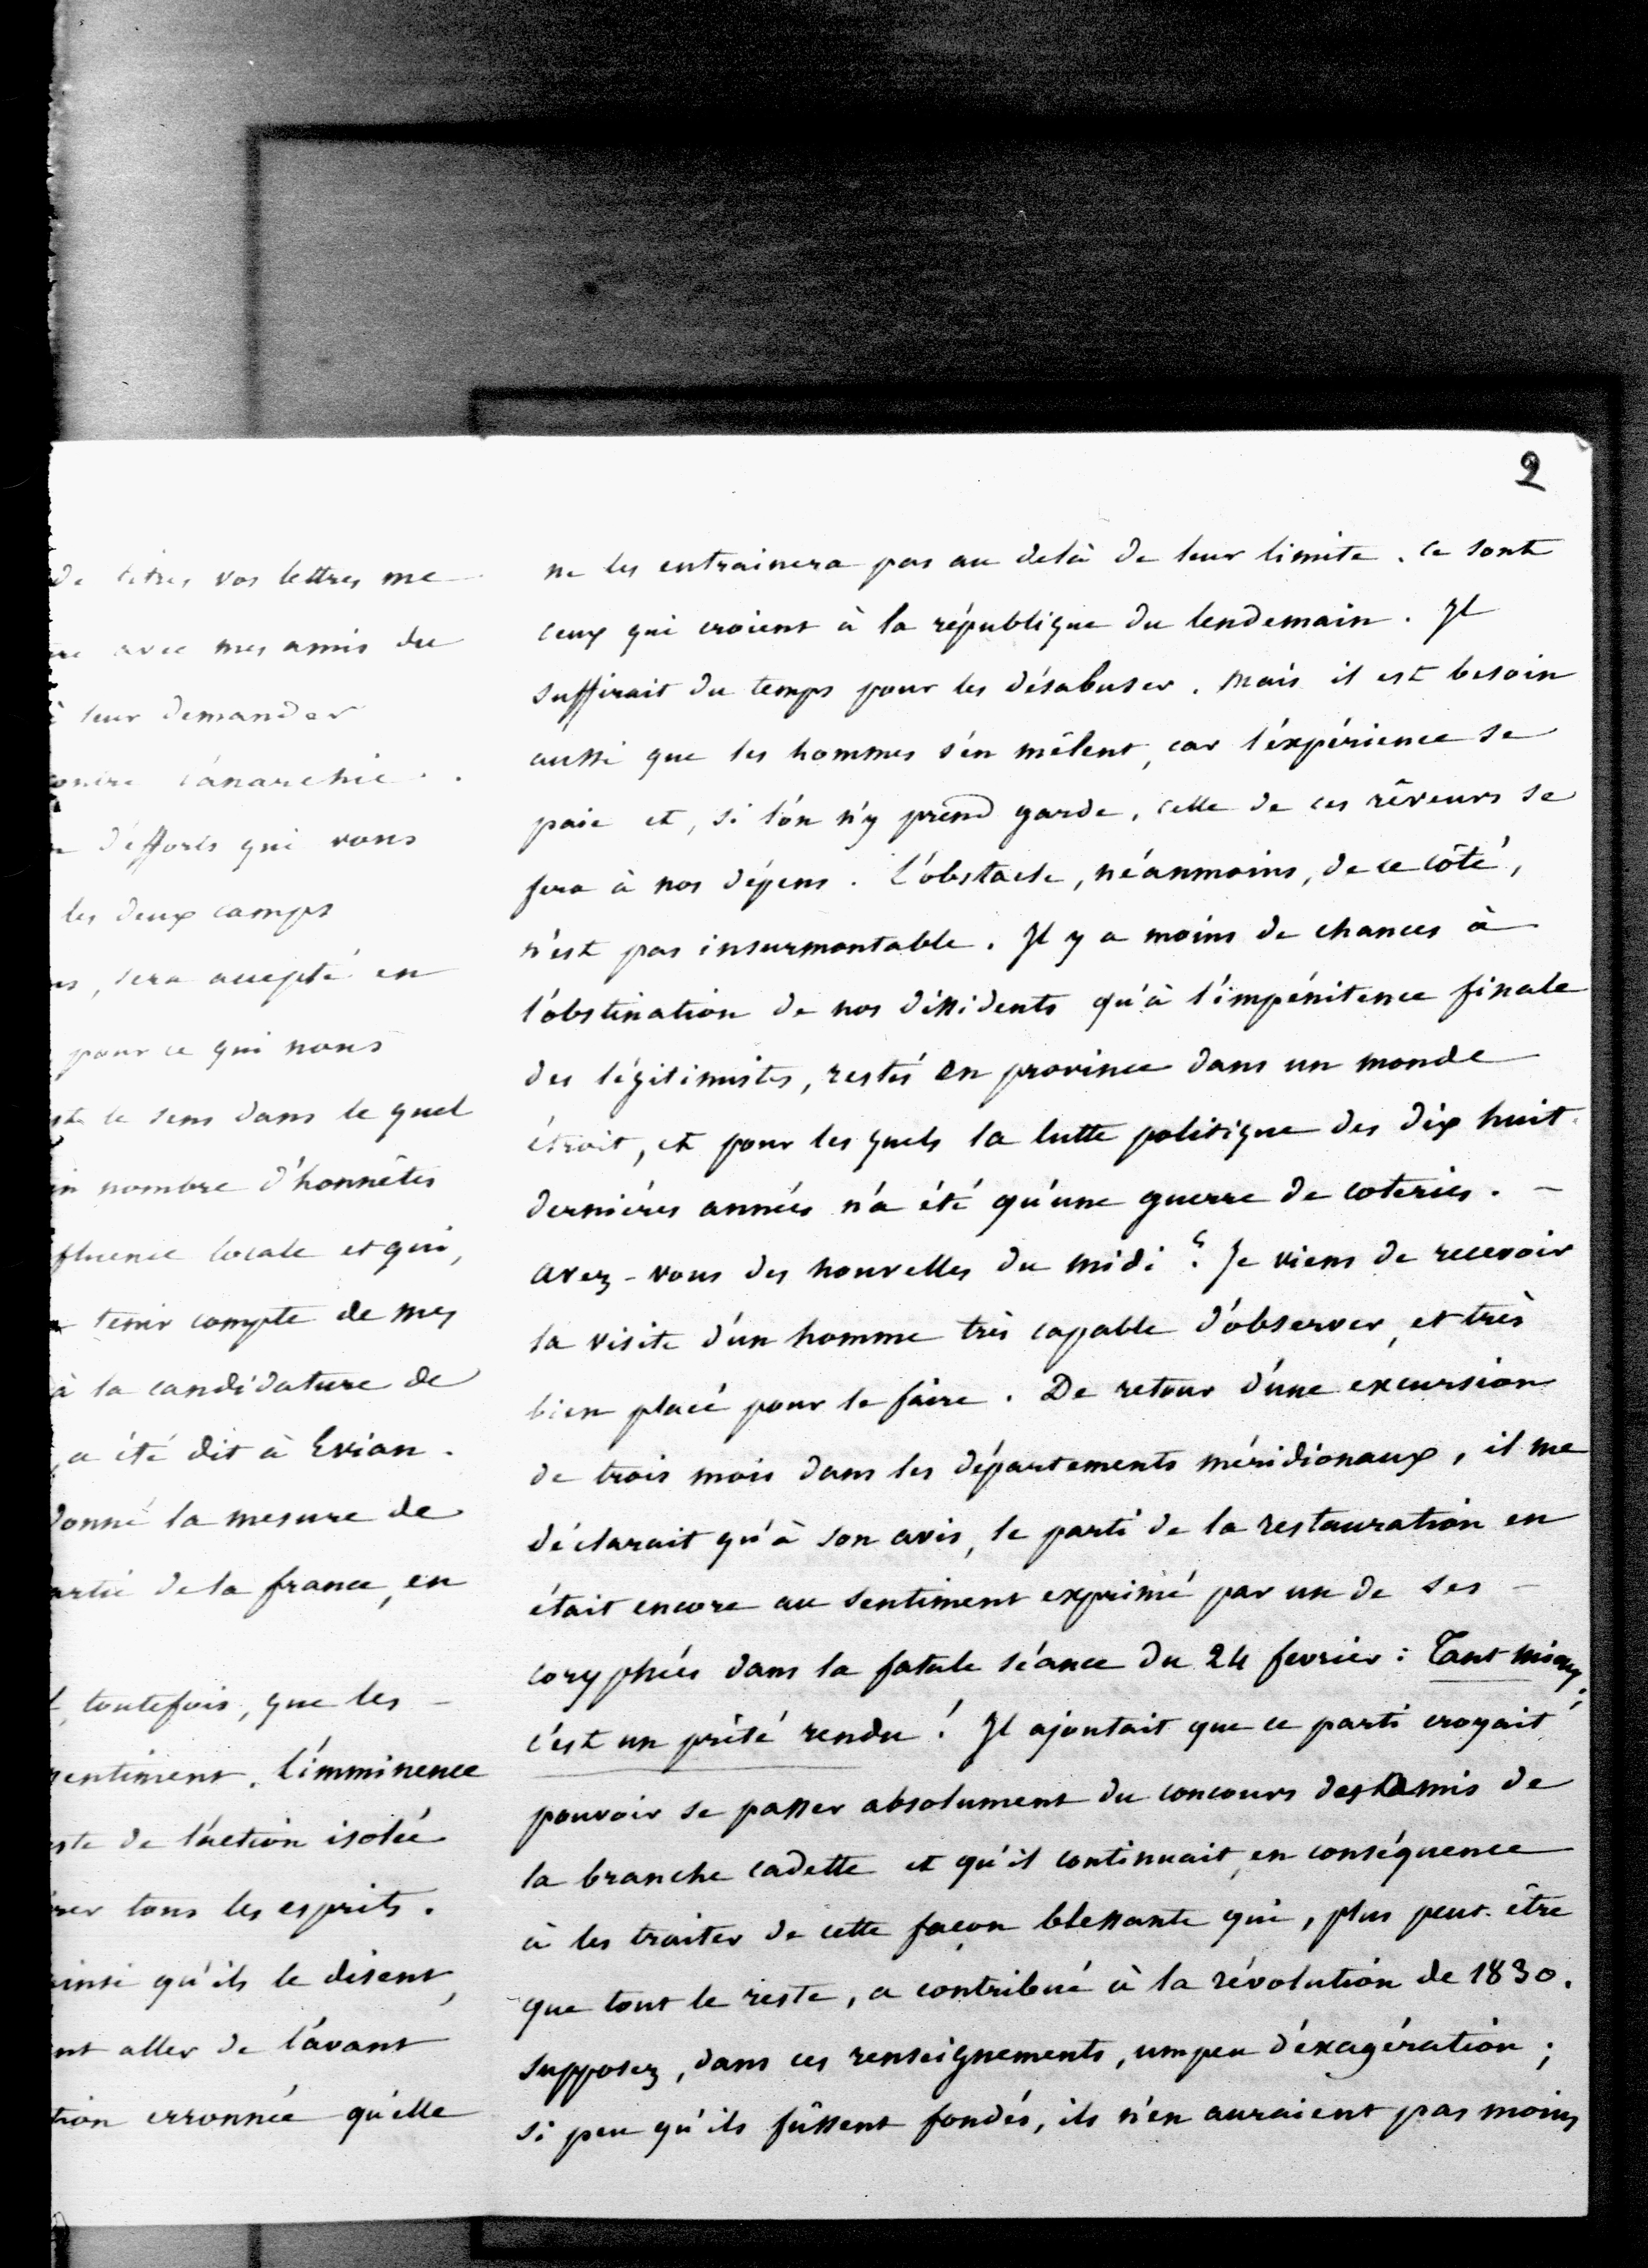 2
de titres vos lettres me
avec mes amis du
à leur demander
l'anarchie.
d'efforts qui vous
les deux camps
sera accepté en
pour ce qui nous
le sens dans le quel
nombre d'honnêtes
fluence locale et qui,
tenir compte de mes
à la candidature de
a été dit à Evian.
donné la mesure de
artie de la france, en
toutefois, que les -
entiment. l'imminence
ste de l'action isolée
rer tous les esprits.
insi qu'ils le disent,
nt aller de l'avant
tion erronnée qu'elle
ne les entrainera pas au delà de leur limite. Ce sont
ceux qui croient à la république du lendemain. Il
suffirait du temps pour les désabuser. Mais il est besoin
aussi que les hommes s'én mêlent, car l'éxpérience se
paie et, si l'on n'y prend garde, celle de ces rêveurs se
fera à nos dépens. L'obstacle, néanmoins, de ce côté,
n'est pas insurmontable. Il y a moins de chances à
l'obstination de nos dissidents qu'à l'impénitence finale
des légitimistes, restés en province dans un monde
étroit, et pour les quels la lutte politique des dix huit
derniérés années n'a été qu'une guerre de coteries. -
avez-vous des nouvelles du midi ? Je viens de recevoir
la visite d'un homme très capable d'observer, et très
bien placé pour le faire. De retour d'une excursion
de trois mois dans les départements méridionaux, il me
déclarait qu'à son avis, le parti de la restauration en
était encore au sentiment exprimé par un de ses -
coryphées dans la fatale séance du 24 fevrier : Tant mieux;
c'est un prêté rendu ! Il ajoutait que ce parti croyait
pouvoir se passer absolument du concours des amis de
la branche cadette et qu'il continuait, en conséquence
à les traiter de cette façon blessante qui, plus peut-être
que tout le reste, a contribué à la révolution de 1830.
supposez, dans ces renseignements, un peu d'éxagération ;
si peu qu'ils fûssent fondés, ils n'en auraient pas moins